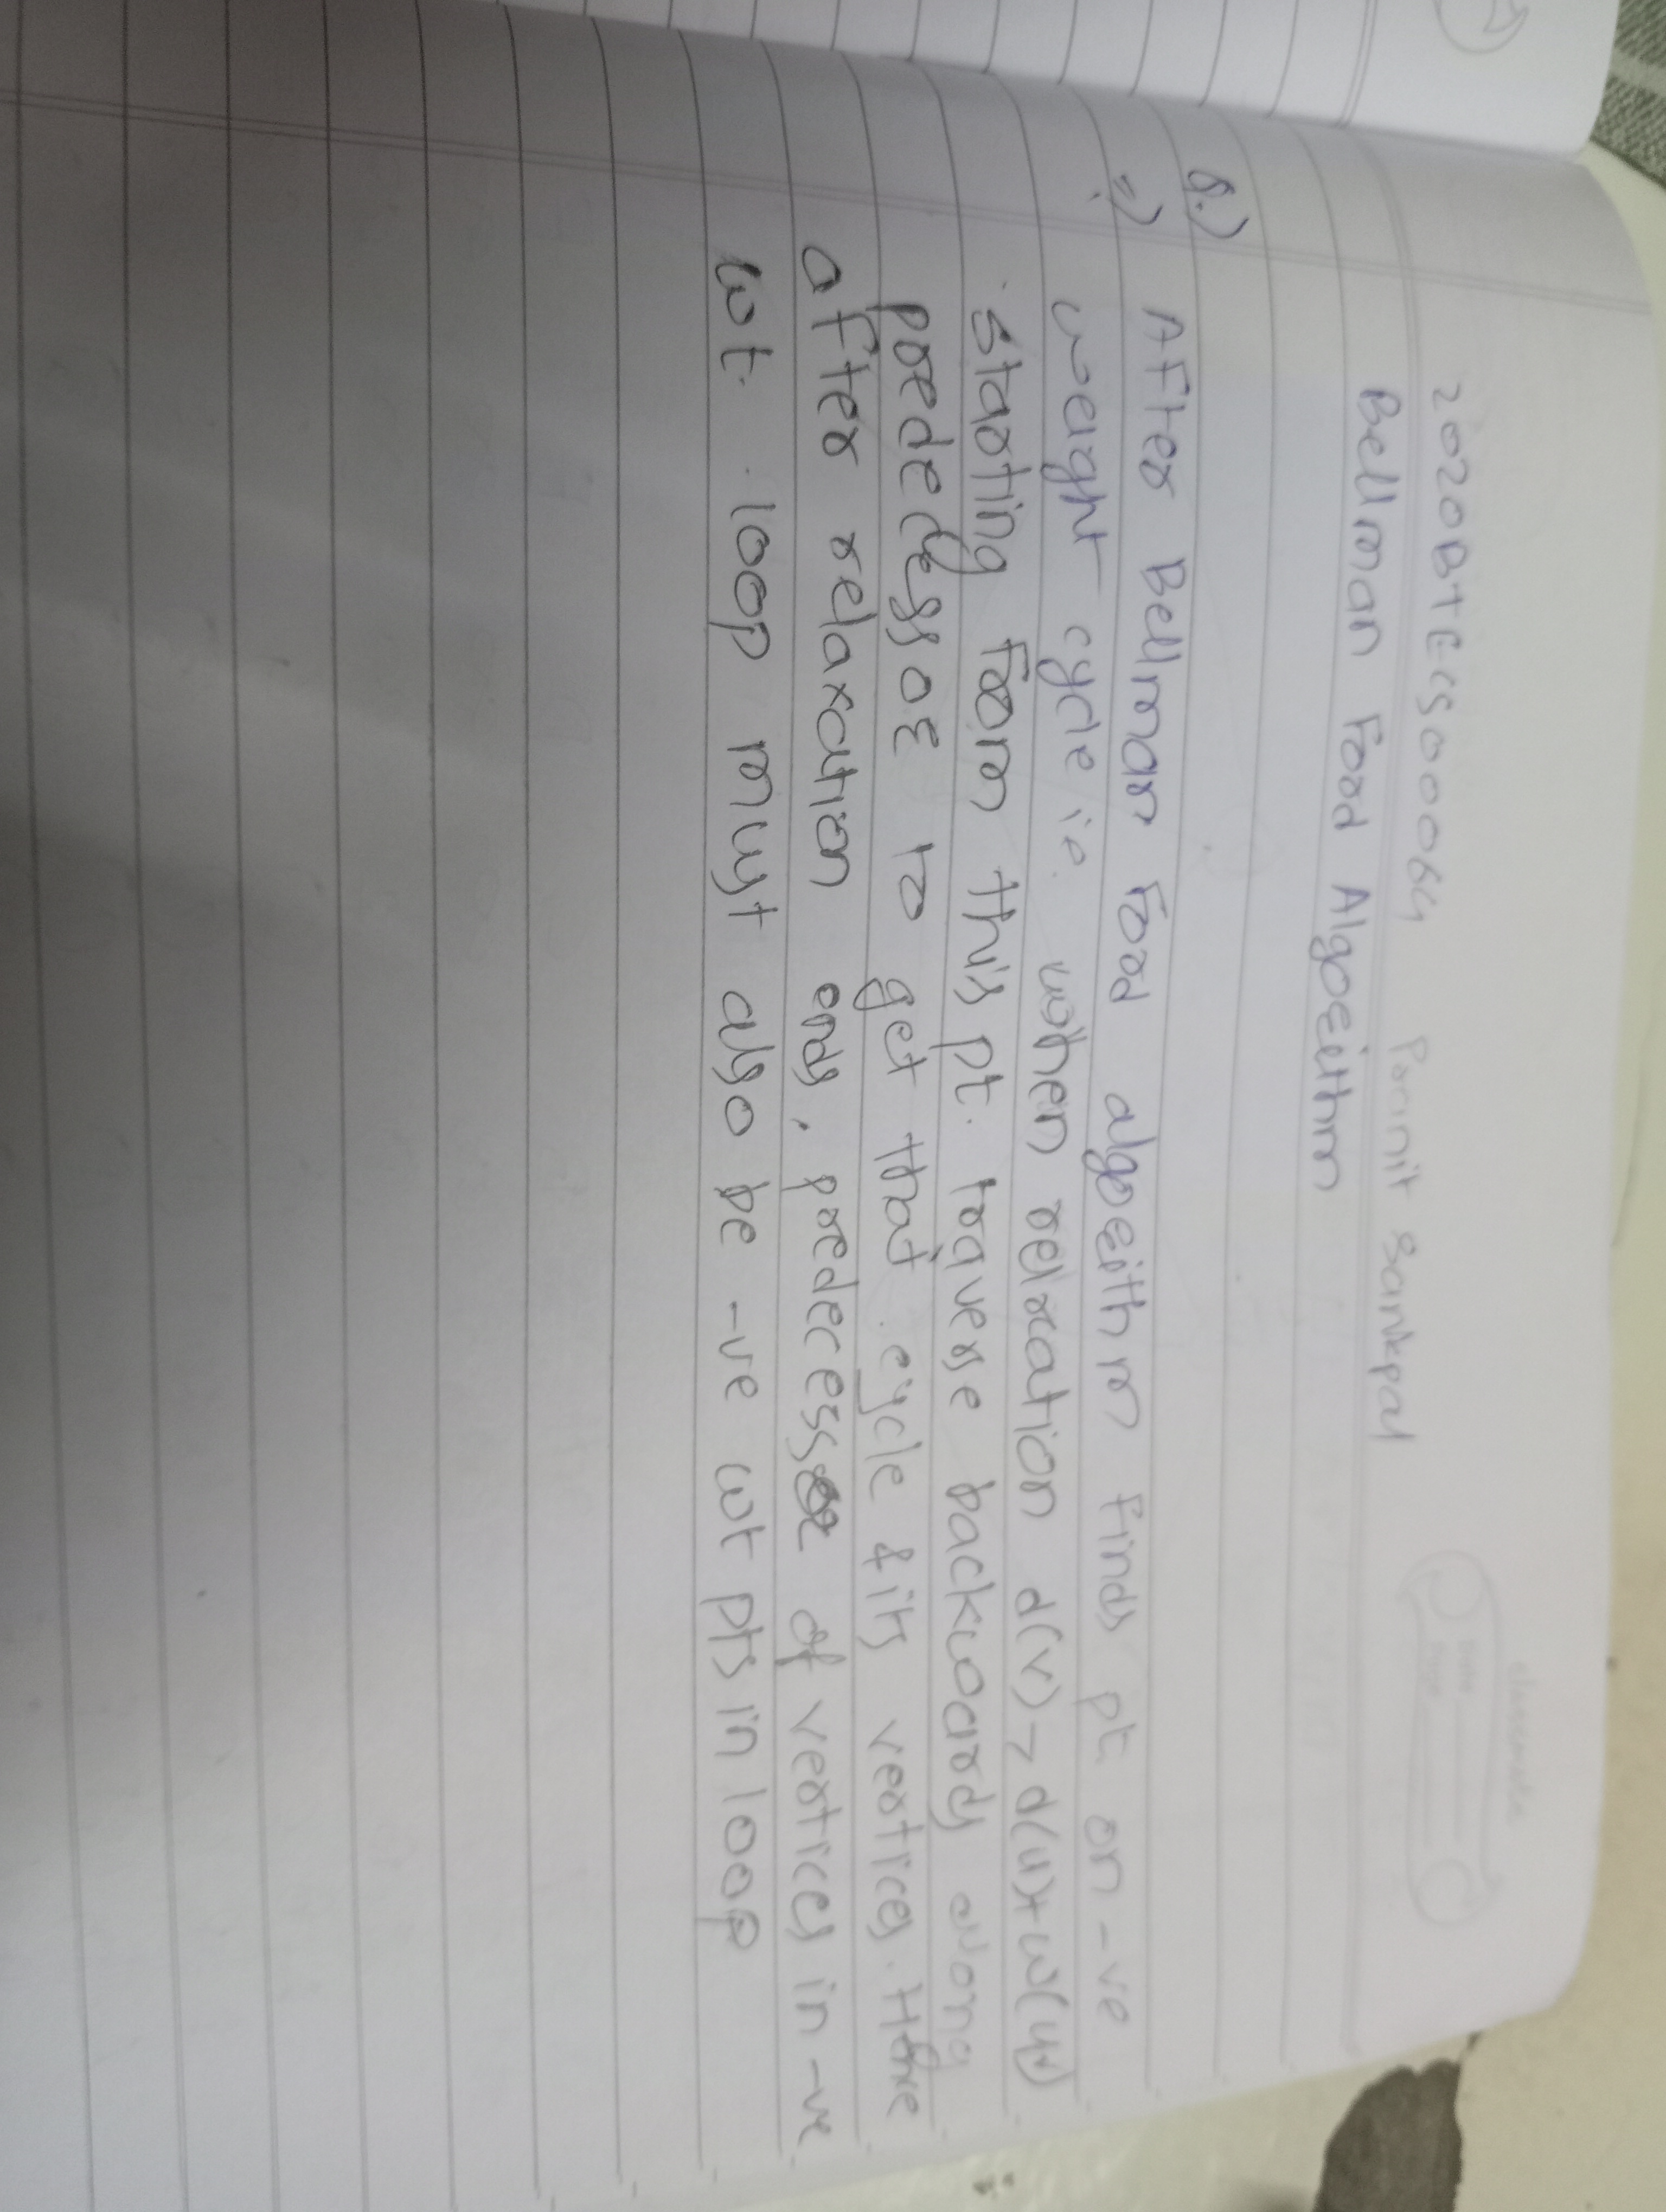 classmate
Date
Page
2020BTECS00064 Parnit Sankpal
Bellman Ford Algorithm
Q.)
=) After Bellman Ford algorithm finds pt on -ve
weight cycle ie. when relxation d(v) > d(u) + w(u,v)
starting from this pt. traverse backwards along
predecessor to get that cycle & its vertices. Here
after relaxation ends, predecessor of vertices in -ve
wt. loop must also be -ve wt pts in loop